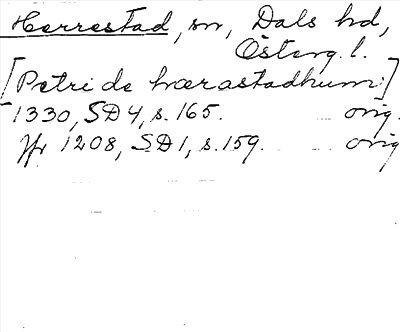 Herrestad, sn, Dals hd,
Österg. l.
[Petri de hærastadhum:]
1330, SD 4, s. 165. orig.
Jfr 1208, SD 1, s. 159. orig